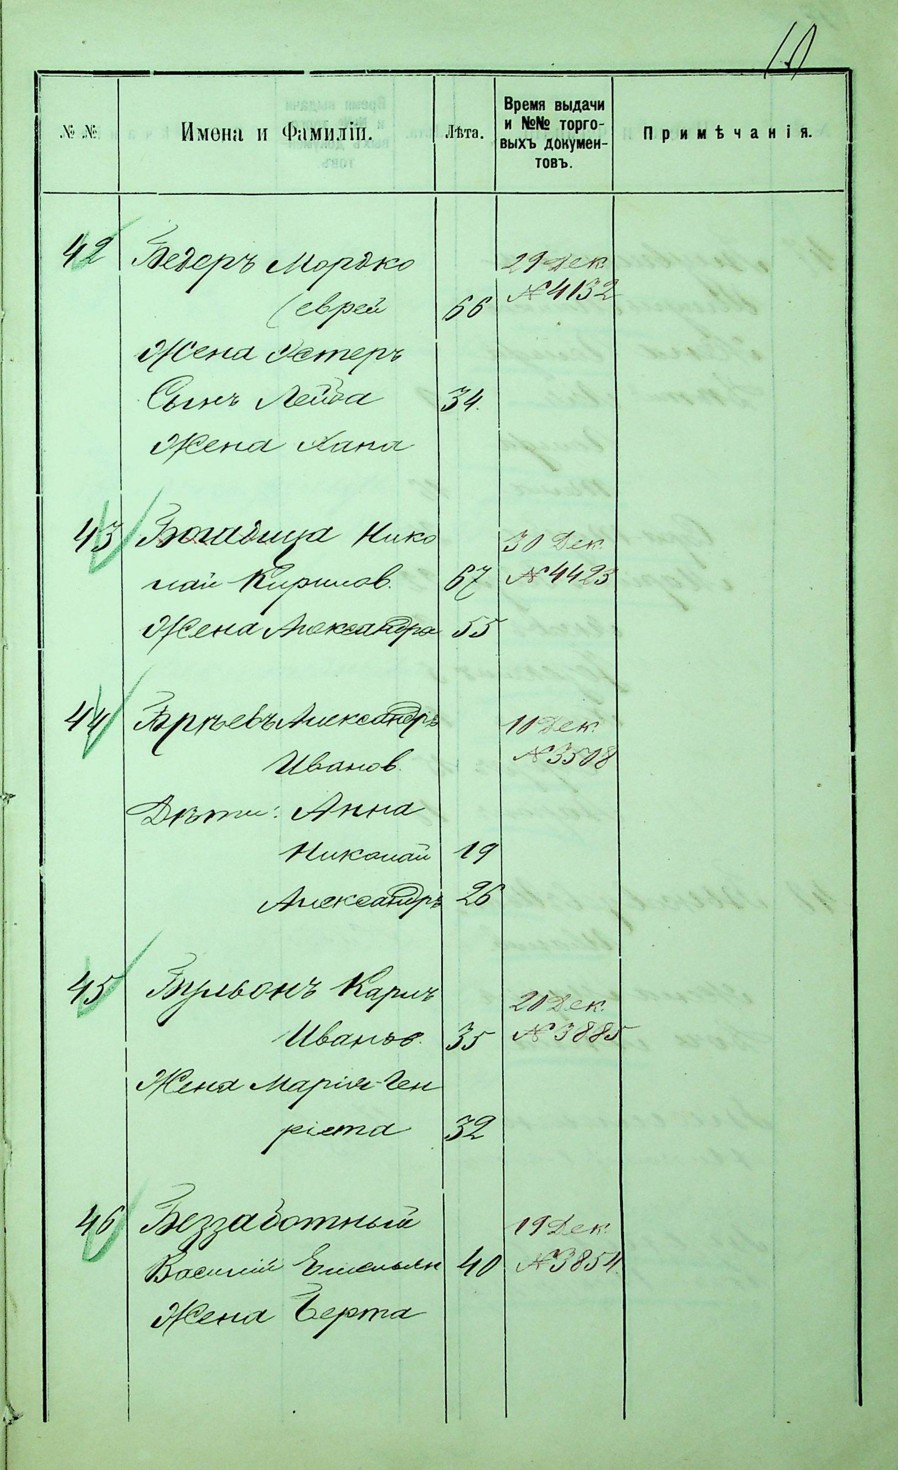 10
№ №
Имена и Фамиліи.
Лѣта.
Время выдачи
и №№ торго-
выхъ докумен-
товъ.
Примѣчанія.
42 Бедеръ Мордко 29 Дек.
(еврей 66 № 4132
Жена Эстеръ
Сынъ Лейба 34.
Жена Хана
43 Богадица Нико 30 Дек.
лай Кирилов. 67 № 4423
Жена Александра 55
44 Александръ 10 Дек.
Иванов. № 3508
Дѣти: Анна
Николай 19
Александръ 26
45 Бульонъ Карлъ 20 Дек.
Иванов. 35 № 3885
Жена Марія-Ген
ріета 32
46 Беззаботный 19 Дек.
Василій Емельян 40 № 3854.
Жена Берта